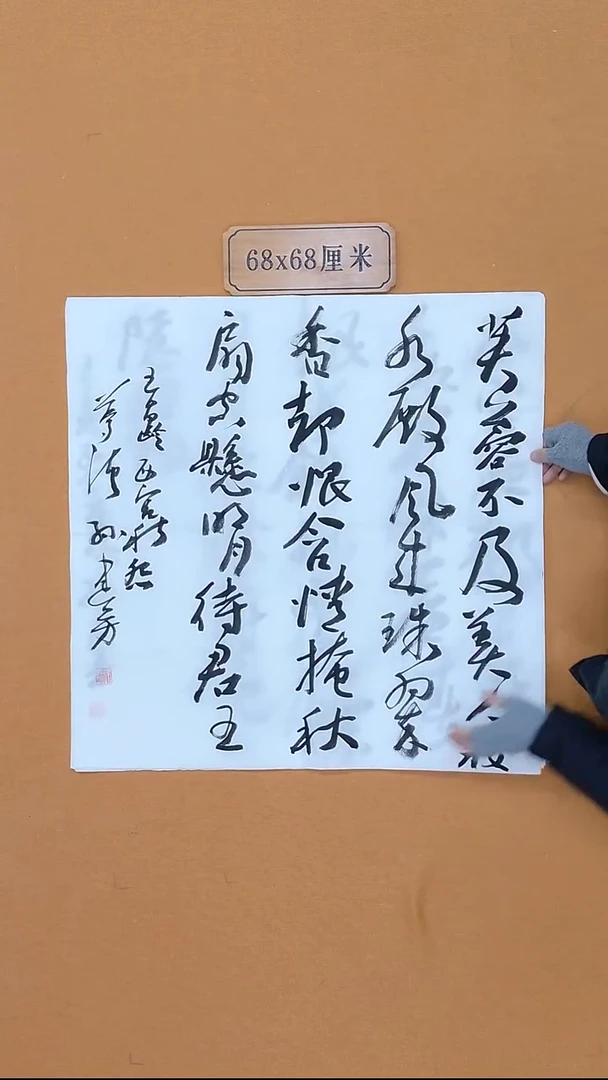 68x68厘米
芙蓉不及美人妝
水殿风来珠翠
香却恨含情掩秋
扇空懸明月待君王
王昌齡西宫秋怨
孙建芳